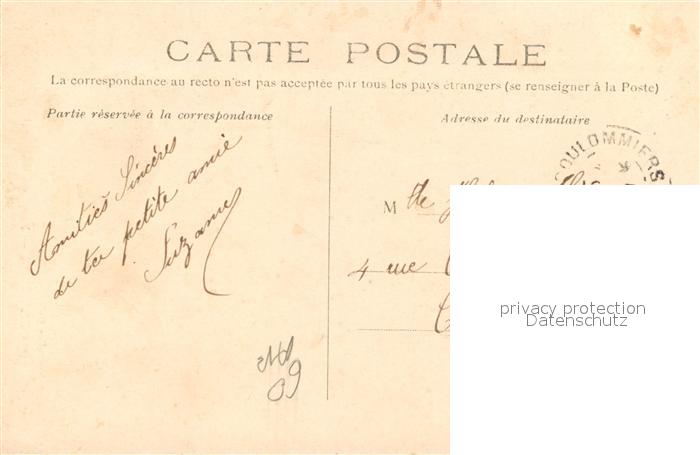 CARTE POSTALE
La correspondance au recto n'est pas acceptée par tous les pays étrangers (se renseigner à la Poste)
Partie réservée à la correspondance
Adresse du destinataire
COULOMMIERS
Amitiés Sincères
de ta petite amie
Suzanne
M
4 rue
privacy protection
Datenschutz
09